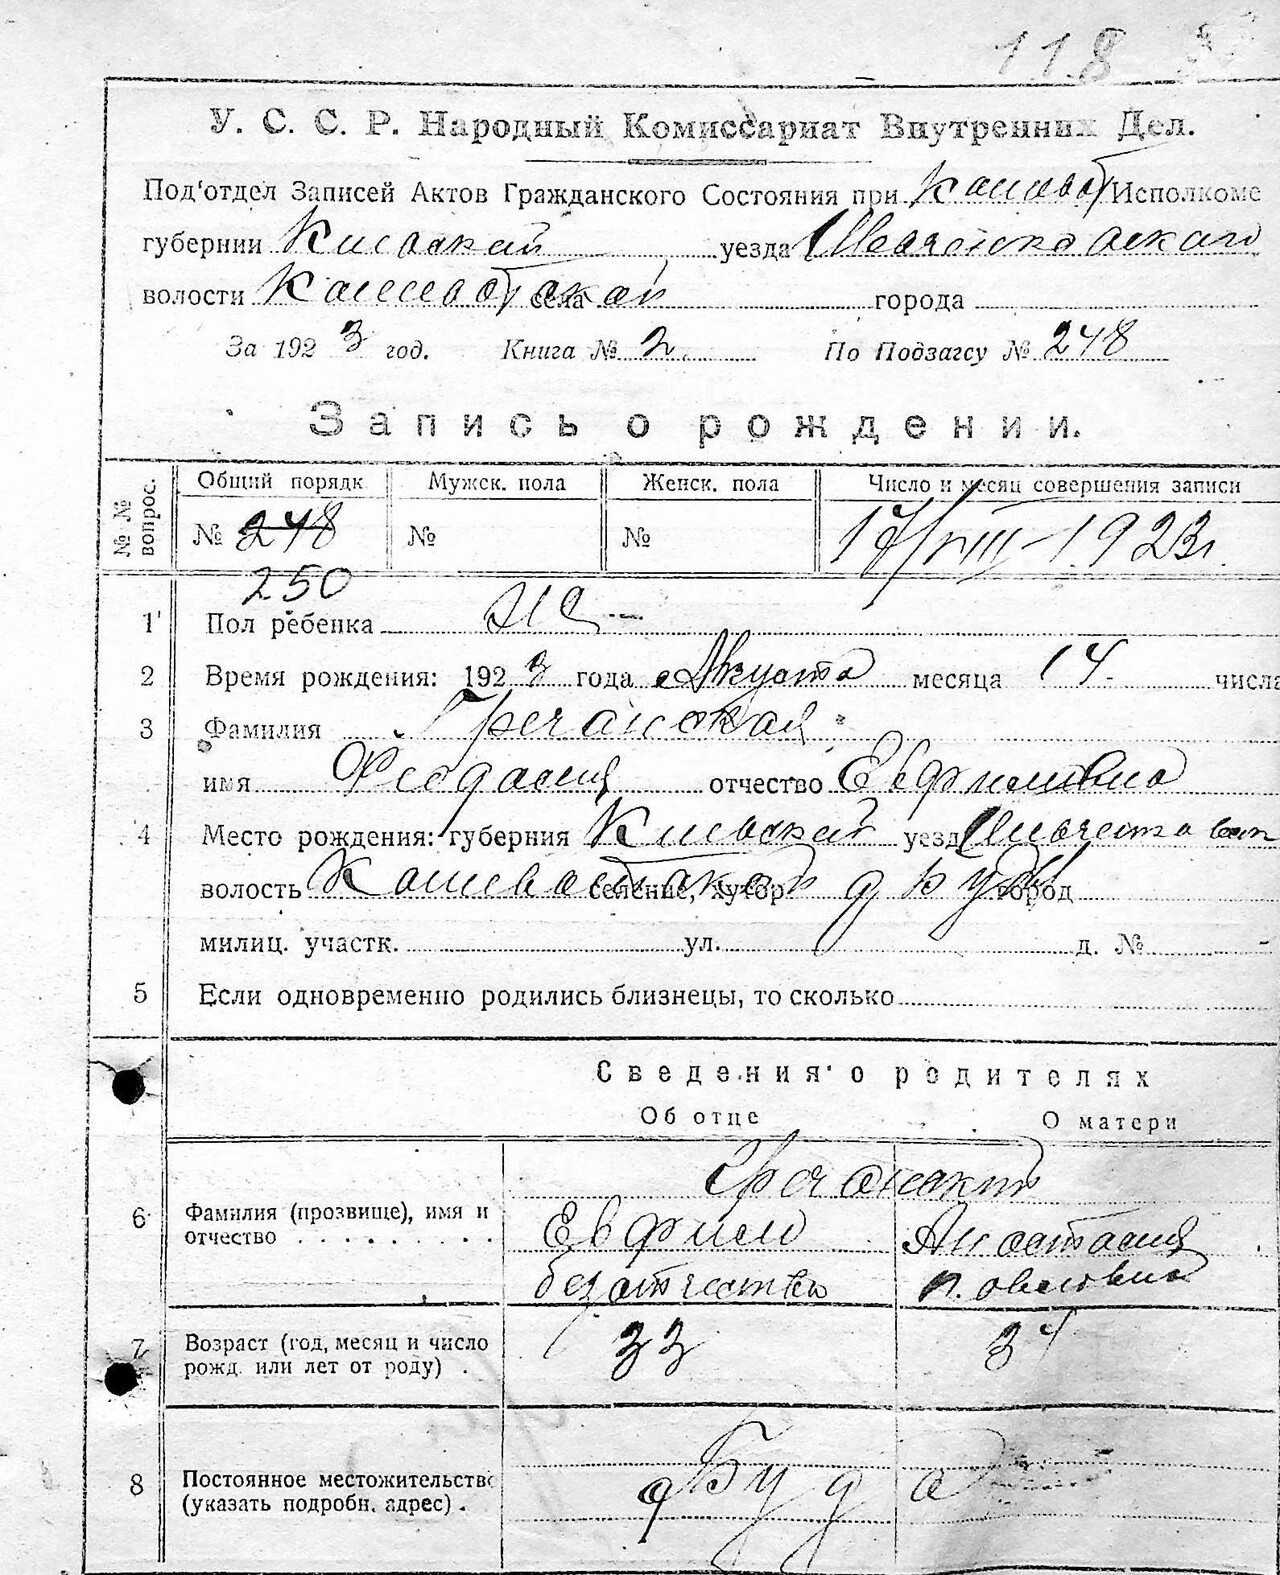 118
У. С. С. Р. Народный Комиссариат Внутренних Дел.
Под'отдел Записей Актов Гражданского Состояния при Кошеват Исполкоме
губернии Киевской уезда Шевченковского
волости Кошеватской села города
За 1923 год. Книга № 2. По Подзагсу № 248
Запись о рождении.
№№ вопрос. Общий порядк Мужск. пола Женск. пола Число и месяц совершения записи
№ 248 № № 17/VIII-1923г.
250
1 Пол ребенка
2 Время рождения: 1923 года Августа месяца 14 числа
3 Фамилия Гречанская
имя Феодосия отчество Евфимовна
4 Место рождения: губерния Киевской уезд
волость Кошеватской селение, хутор д Буда город
милиц. участк. ул. д. № -
5 Если одновременно родились близнецы, то сколько
Сведения о родителях
Об отце О матери
Гречанские
6 Фамилия (прозвище), имя и Евфим Анастасия
отчество . . . . . . . . . без отчества Павловна
7 Возраст (год, месяц и число 33 34
рожд. или лет от роду) .
8 Постоянное местожительство д Буда
(указать подробн. адрес) .